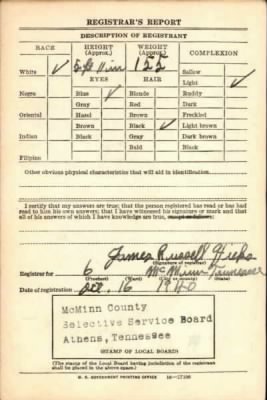 REGISTRAR'S REPORT
DESCRIPTION OF REGISTRANT
RACE HEIGHT (Approx.) WEIGHT (Approx.) COMPLEXION
5 ft 155 Sallow
White ✓ EYES HAIR Light ✓
Negro Blue ✓ Blonde Ruddy
Gray Red Dark
Oriental Hazel Brown Freckled
Brown Black ✓ Light brown
Indian Black Gray Dark brown
Bald Black
Filipino
Other obvious physical characteristics that will aid in identification
I certify that my answers are true; that the person registered has read or has
had read to him his own answers; that I have witnessed his signature or mark and that
all of his answers of which I have knowledge are true,
James Russell Hicks
(Signature of registrar)
Registrar for 6 McMinn Tennessee
(Precinct) (Ward) (City or county)
Date of registration Oct. 16 1940
McMinn County
Selective Service Board
Athens, Tennessee
(STAMP OF LOCAL BOARD)
(The stamp of the Local Board having jurisdiction of the registrant
shall be placed in the above space.)
U. S. GOVERNMENT PRINTING OFFICE